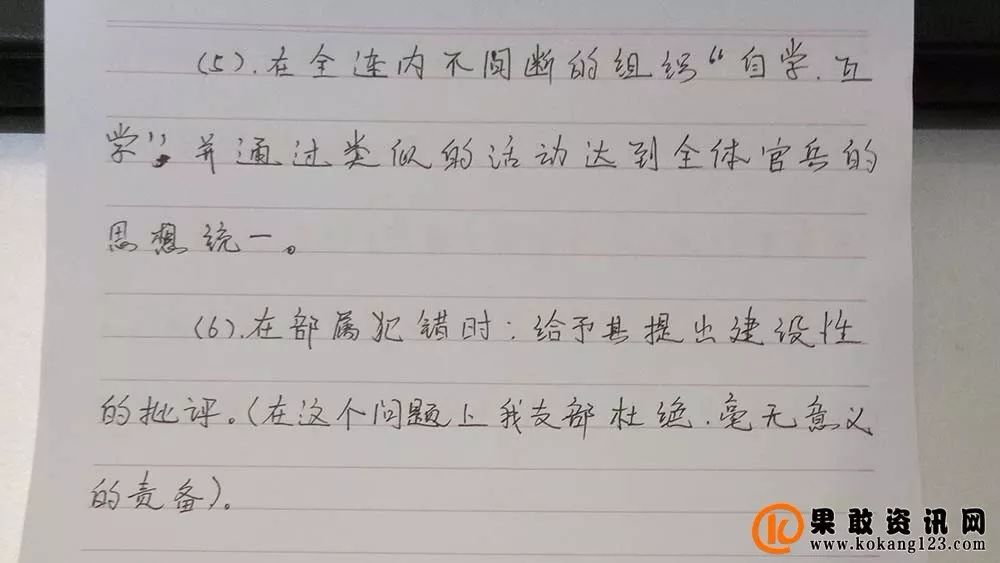 (5).在全连内不间断的组织“自学.互
学”,并通过类似的活动达到全体官兵的
思想统一。
(6).在部属犯错时:给予其提出建设性
的批评。(在这个问题上我支部杜绝.毫无意义
的责备)。
果敢资讯网
www.kokang123.com